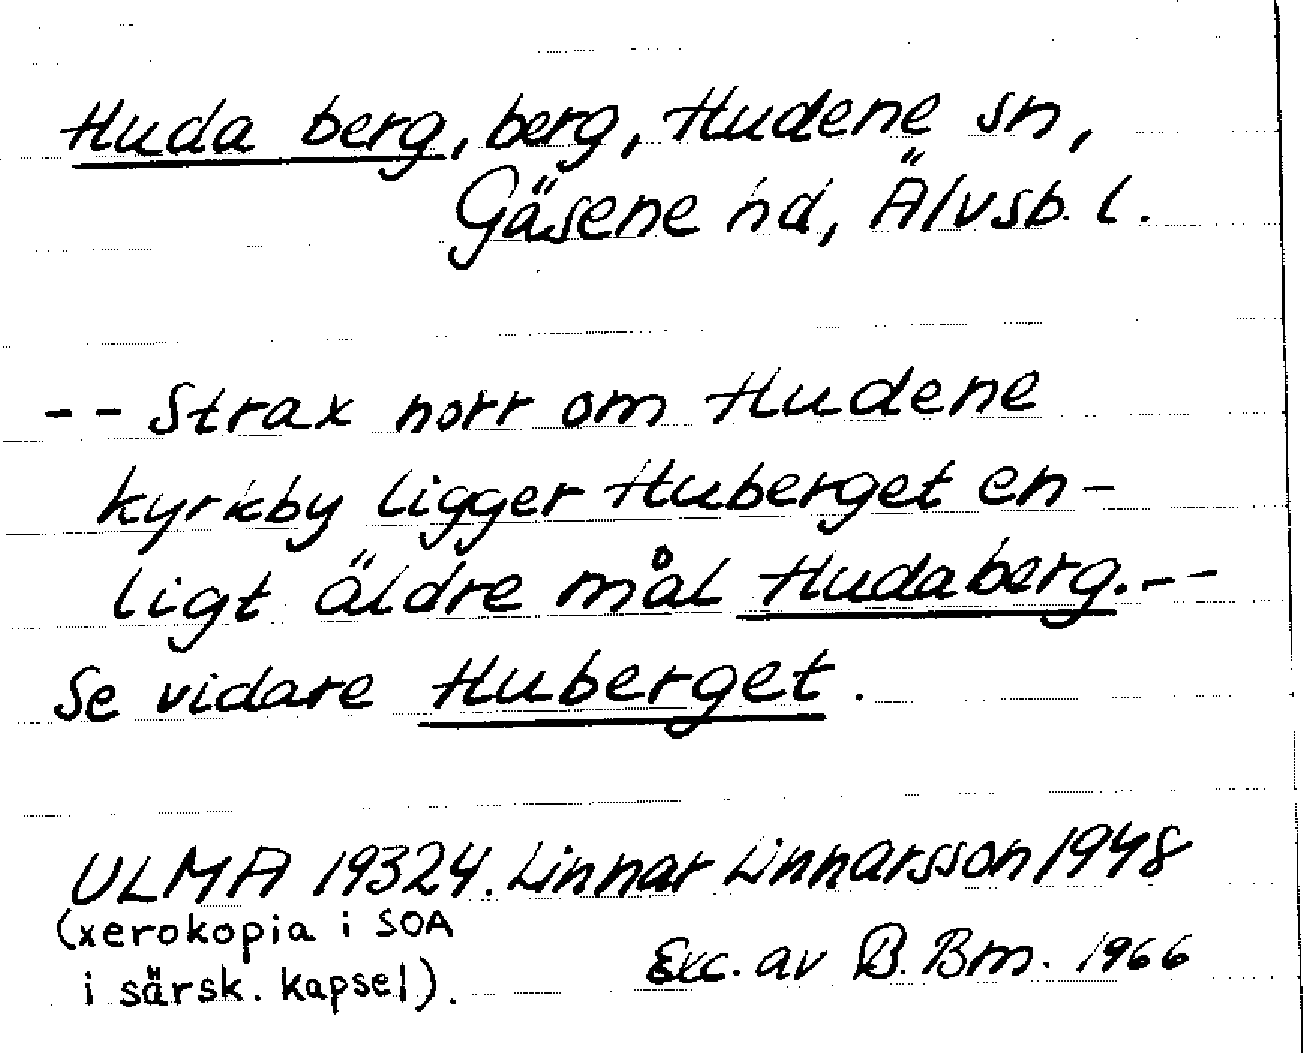 Huda berg, berg, Hudene sn,
Gäsene hd, Älvsb. l.
-- Strax norr om Hudene
kyrkby ligger Huberget en-
ligt äldre mål Hudaberg. --
Se vidare Huberget.
ULMA 19324. Linnar Linnarsson 1948
(xerokopia i SOA
i särsk. kapsel).
Exc. av B. Bm. 1966